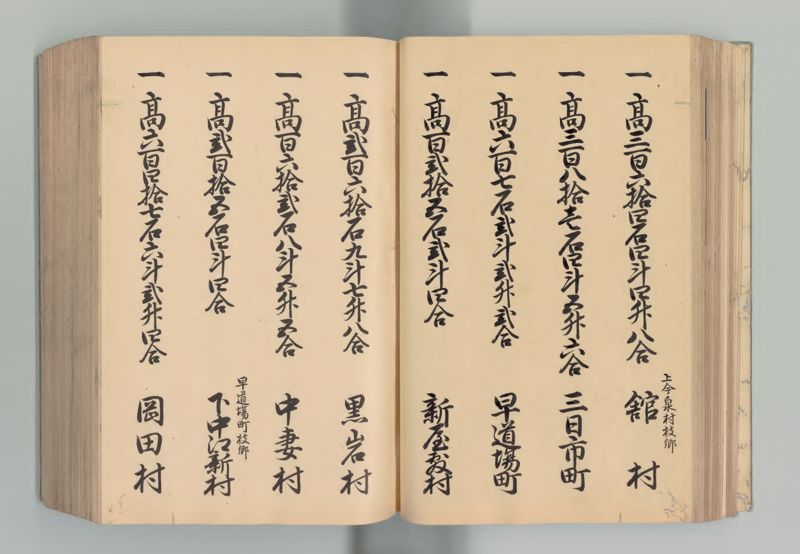 一 高三百六拾四石四斗四升八合 上今泉村枝郷 舘村
一 高三百八拾壱石四斗五升六合 三日市町
一 高六百七石弐斗弐升弐合 早道場町
一 高百弐拾五石弐斗四合 新屋敷村
一 高弐百六拾石九斗七升八合 黒岩村
一 高百六拾弐石八斗五升五合 中妻村
一 高弐百拾五石四斗四合 早道場町枝郷 下中江新村
一 高六百四拾七石六斗弐升四合 岡田村